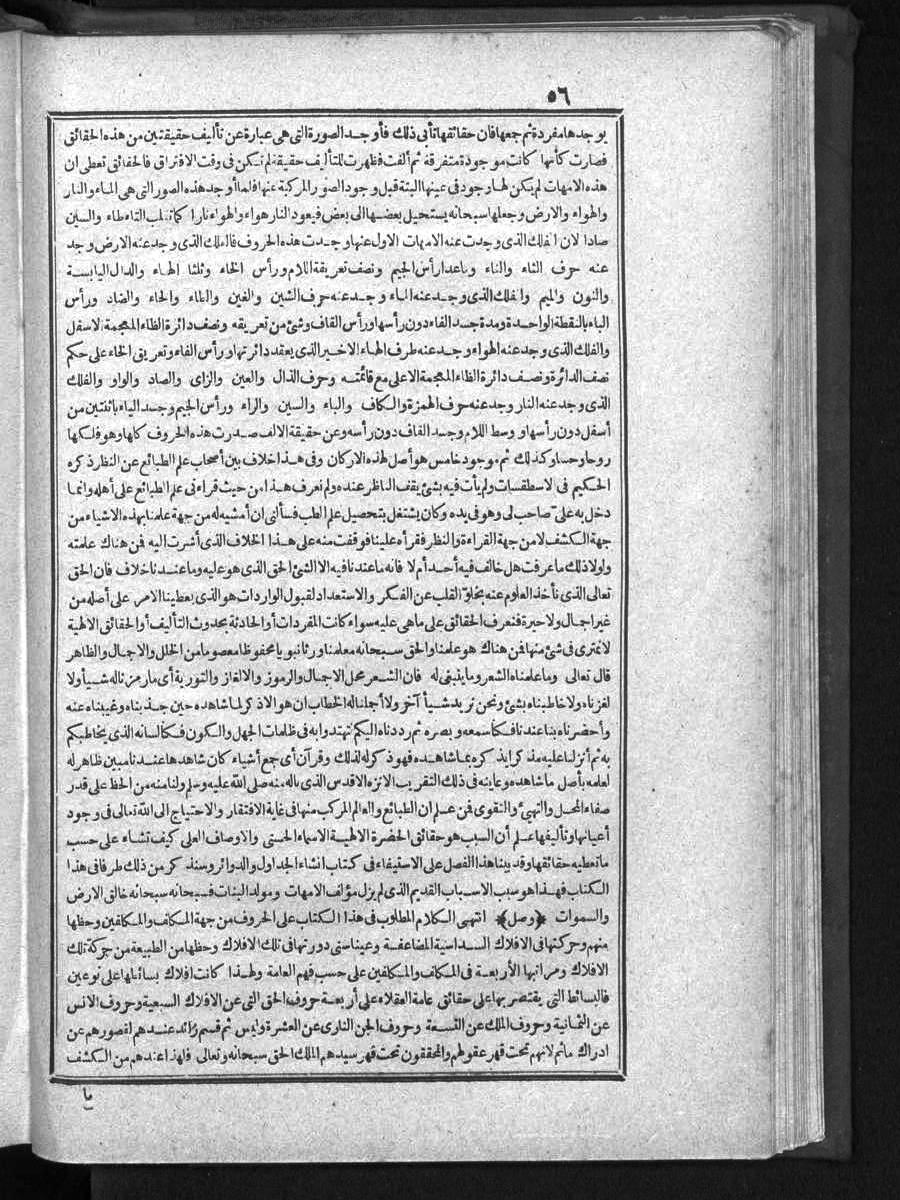 ٥٦
يوجدها مفردة ثم جمعها فان حقائقها تأبى ذلك فأوجد الصورة التي هي عبارة عن تأليف حقيقتين من هذه الحقائق
فصارت كأنها كانت موجودة متفرقة ثم ألفت فظهرت للتأليف حقيقة لم تكن في وقت الافتراق فالحقائق تعطى ان
هذه الامهات لم يكن لها وجود في عينها البتة قبل وجود الصور المركبة عنها فلما أوجد هذه الصور التي هي الماء والنار
والهواء والارض وجعلها سبحانه يستحيل بعضها الى بعض فيعود النار هواء والهواء نارا كما تقلب التاء طاء والسين
صادا لان الفلك الذى وجدت عنه الامهات الاول عنها وجدت هذه الحروف فالفلك الذى وجد عنه الارض وجد
عنه حرف الثاء والتاء وما عدا رأس الجيم ونصف تعريقة اللام ورأس الخاء وثلثا الهاء والدال اليابسة
والنون والميم والفلك الذى وجد عنه الماء وجد عنه حرف الشين والغين والطاء والحاء والضاد ورأس
الباء بالنقطة الواحدة ومدة جسد الفاء دون رأسها ورأس القاف وشئ من تعريقه ونصف دائرة الظاء المعجمة الاسفل
والفلك الذى وجد عنه الهواء وجد عنه طرف الهاء الاخير الذى يعقد دائرتها ورأس الفاء وتعريق الخاء على حكم
نصف الدائرة ونصف دائرة الظاء المعجمة الاعلى مع قائمته وحرف الذال والعين والزاى والصاد والواو والفلك
الذى وجد عنه النار وجد عنه حرف الهمزة والكاف والباء والسين والراء ورأس الجيم وجسد الياء باثنتين من
أسفل دون رأسها ووسط اللام وجسد القاف دون رأسه وعن حقيقة الالف صدرت هذه الحروف كلها وهو فلكها
روحا وحسا وكذلك ثم موجود خامس هو أصل لهذه الاركان وفى هذا خلاف بين أصحاب علم الطبائع عن النظر ذكره
الحكيم في الاسطقسات ولم يأت فيه بشئ يقف الناظر عنده ولم نعرف هذا من حيث قراءتى علم الطبائع على أهله وانما
دخل به على صاحب لى وهو في يده وكان يشتغل بتحصيل علم الطب فسألنى ان أمشيه له من جهة علمنا بهذه الاشياء من
جهة الكشف لا من جهة القراءة والنظر فقرأه علينا فوقفت منه على هذا الخلاف الذى أشرت اليه فمن هناك علمته
ولولا ذلك ما عرفت هل خالف فيه أحد أم لا فانه ما عندنا فيه الا الشئ الحق الذى هو عليه وما عندنا خلاف فان الحق
تعالى الذى نأخذ العلوم عنه بخلو القلب عن الفكر والاستعداد لقبول الواردات هو الذى يعطينا الامر على أصله من
غير اجمال ولا حيرة فنعرف الحقائق على ما هى عليه سواء كانت المفردات أو الحادثة بحدوث التأليف أو الحقائق الالهية
لا نمترى في شئ منها فمن هناك هو علمنا والحق سبحانه معلمنا ورثا نبويا محفوظا معصوما من الخلل والاجمال والظاهر
قال تعالى وما علمناه الشعر وما ينبغى له فان الشعر محل الاجمال والرموز والالغاز والتورية أى ما رمزنا له شيأ ولا
لغزناه ولا خاطبناه بشئ ونحن نريد شيأ آخر ولا أجملنا له الخطاب ان هو الا ذكر لما شاهده حين جذبناه وغيبناه عنه
وأحضرناه بنا عندنا فكنا سمعه وبصره ثم رددناه اليكم لتهتدوا به في ظلمات الجهل والكون فكنا لسانه الذى يخاطبكم
به ثم أنزلنا عليه مذكرا يذكره بما شاهده فهو ذكر له لذلك وقرآن أى جمع أشياء كان شاهدها عندنا مبين ظاهر له
لعلمه بأصل ما شاهده وعاينه في ذلك التقريب الانزه الاقدس الذى ناله منه صلى الله عليه وسلم ولنا منه من الحظ على قدر
صفاء المحل والتهيئ والتقوى فمن علم ان الطبائع والعالم المركب منها في غاية الافتقار والاحتياج الى الله تعالى في وجود
أعيانها وتأليفها علم أن السبب هو حقائق الحضرة الالهية الاسماء الحسنى والاوصاف العلى كيف تشاء على حسب
ما تعطيه حقائقها وقد بينا هذا الفصل على الاستيفاء في كتاب انشاء الجداول والدوائر وسنذكر من ذلك طرفا في هذا
الكتاب فهذا هو سبب الاسباب القديم الذى لم يزل مؤلف الامهات ومولد البنات فسبحانه سبحانه خالق الارض
والسموات ﴿وصل﴾ انتهى الكلام المطلوب في هذا الكتاب على الحروف من جهة المكلف والمكلفين وحظها
منهم وحركتها في الافلاك السداسية المضاعفة وعينا سنى دورتها في تلك الافلاك وحظها من الطبيعة من حركة تلك
الافلاك ومراتبها الأربعة في المكلف والمكلفين على حسب فهم العامة ولهذا كانت افلاك بسائطها على نوعين
فالبسائط التي يقتصر بها على حقائق عامة العقلاء على أربعة حروف الحق التي عن الافلاك السبعية وحروف الانس
عن الثمانية وحروف الملك عن التسعة وحروف الجن النارى عن العشرة وليس ثم قسم زائد عندهم لقصورهم عن
ادراك ما ثم لانهم تحت قهر عقولهم والمحققون تحت قهر سيدهم الملك الحق سبحانه وتعالى فلهذا عندهم من الكشف
ما